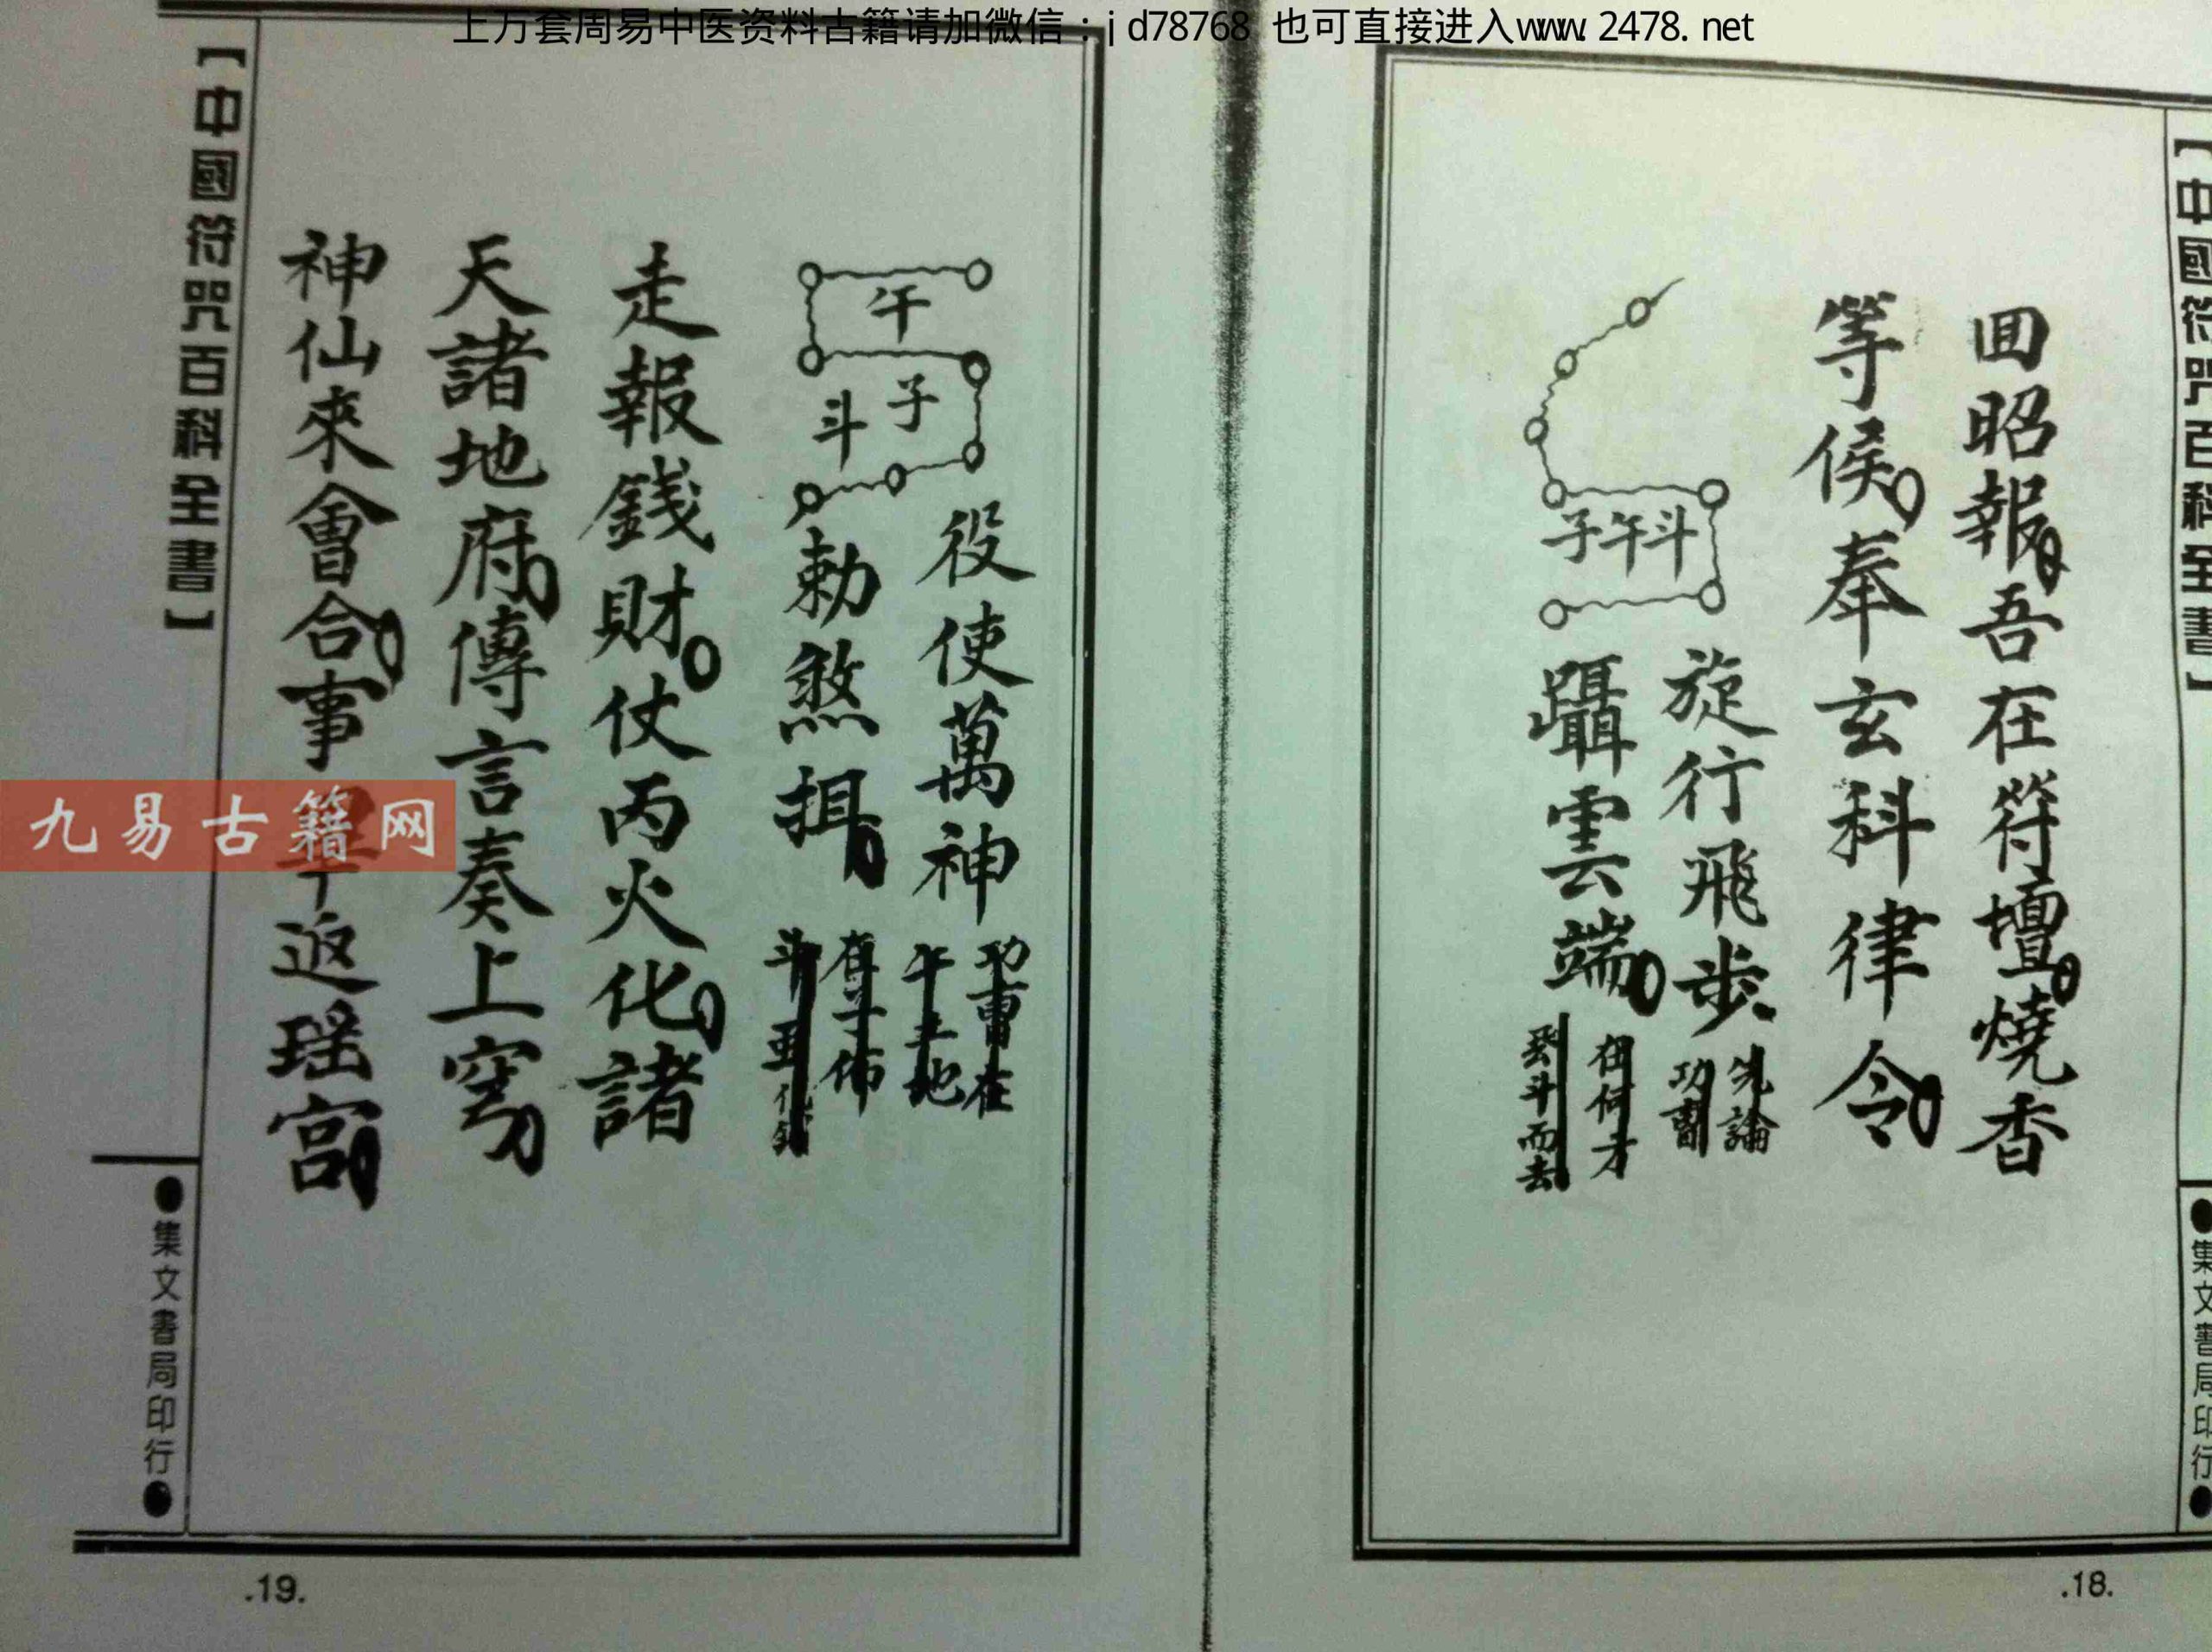 上万套周易中医资料古籍请加微信：jd78768 也可直接进入www.2478.net
【中國符咒百科全書】
回昭報吾在符壇燒香
等侯奉玄科律令
斗午子
旋行飛步
先論
功曹
躡雲端
在何才
斗而去
●集文書局印行●
.18.
午
子
斗
役使萬神
功曹在
午土地
勅煞揖
在子佈
斗
走報錢財仗丙火化諸
天諸地府傳言奏上穹
神仙來會合事畢返瑶宮
【中國符咒百科全書】
九易古籍网
●集文書局印行●
.19.